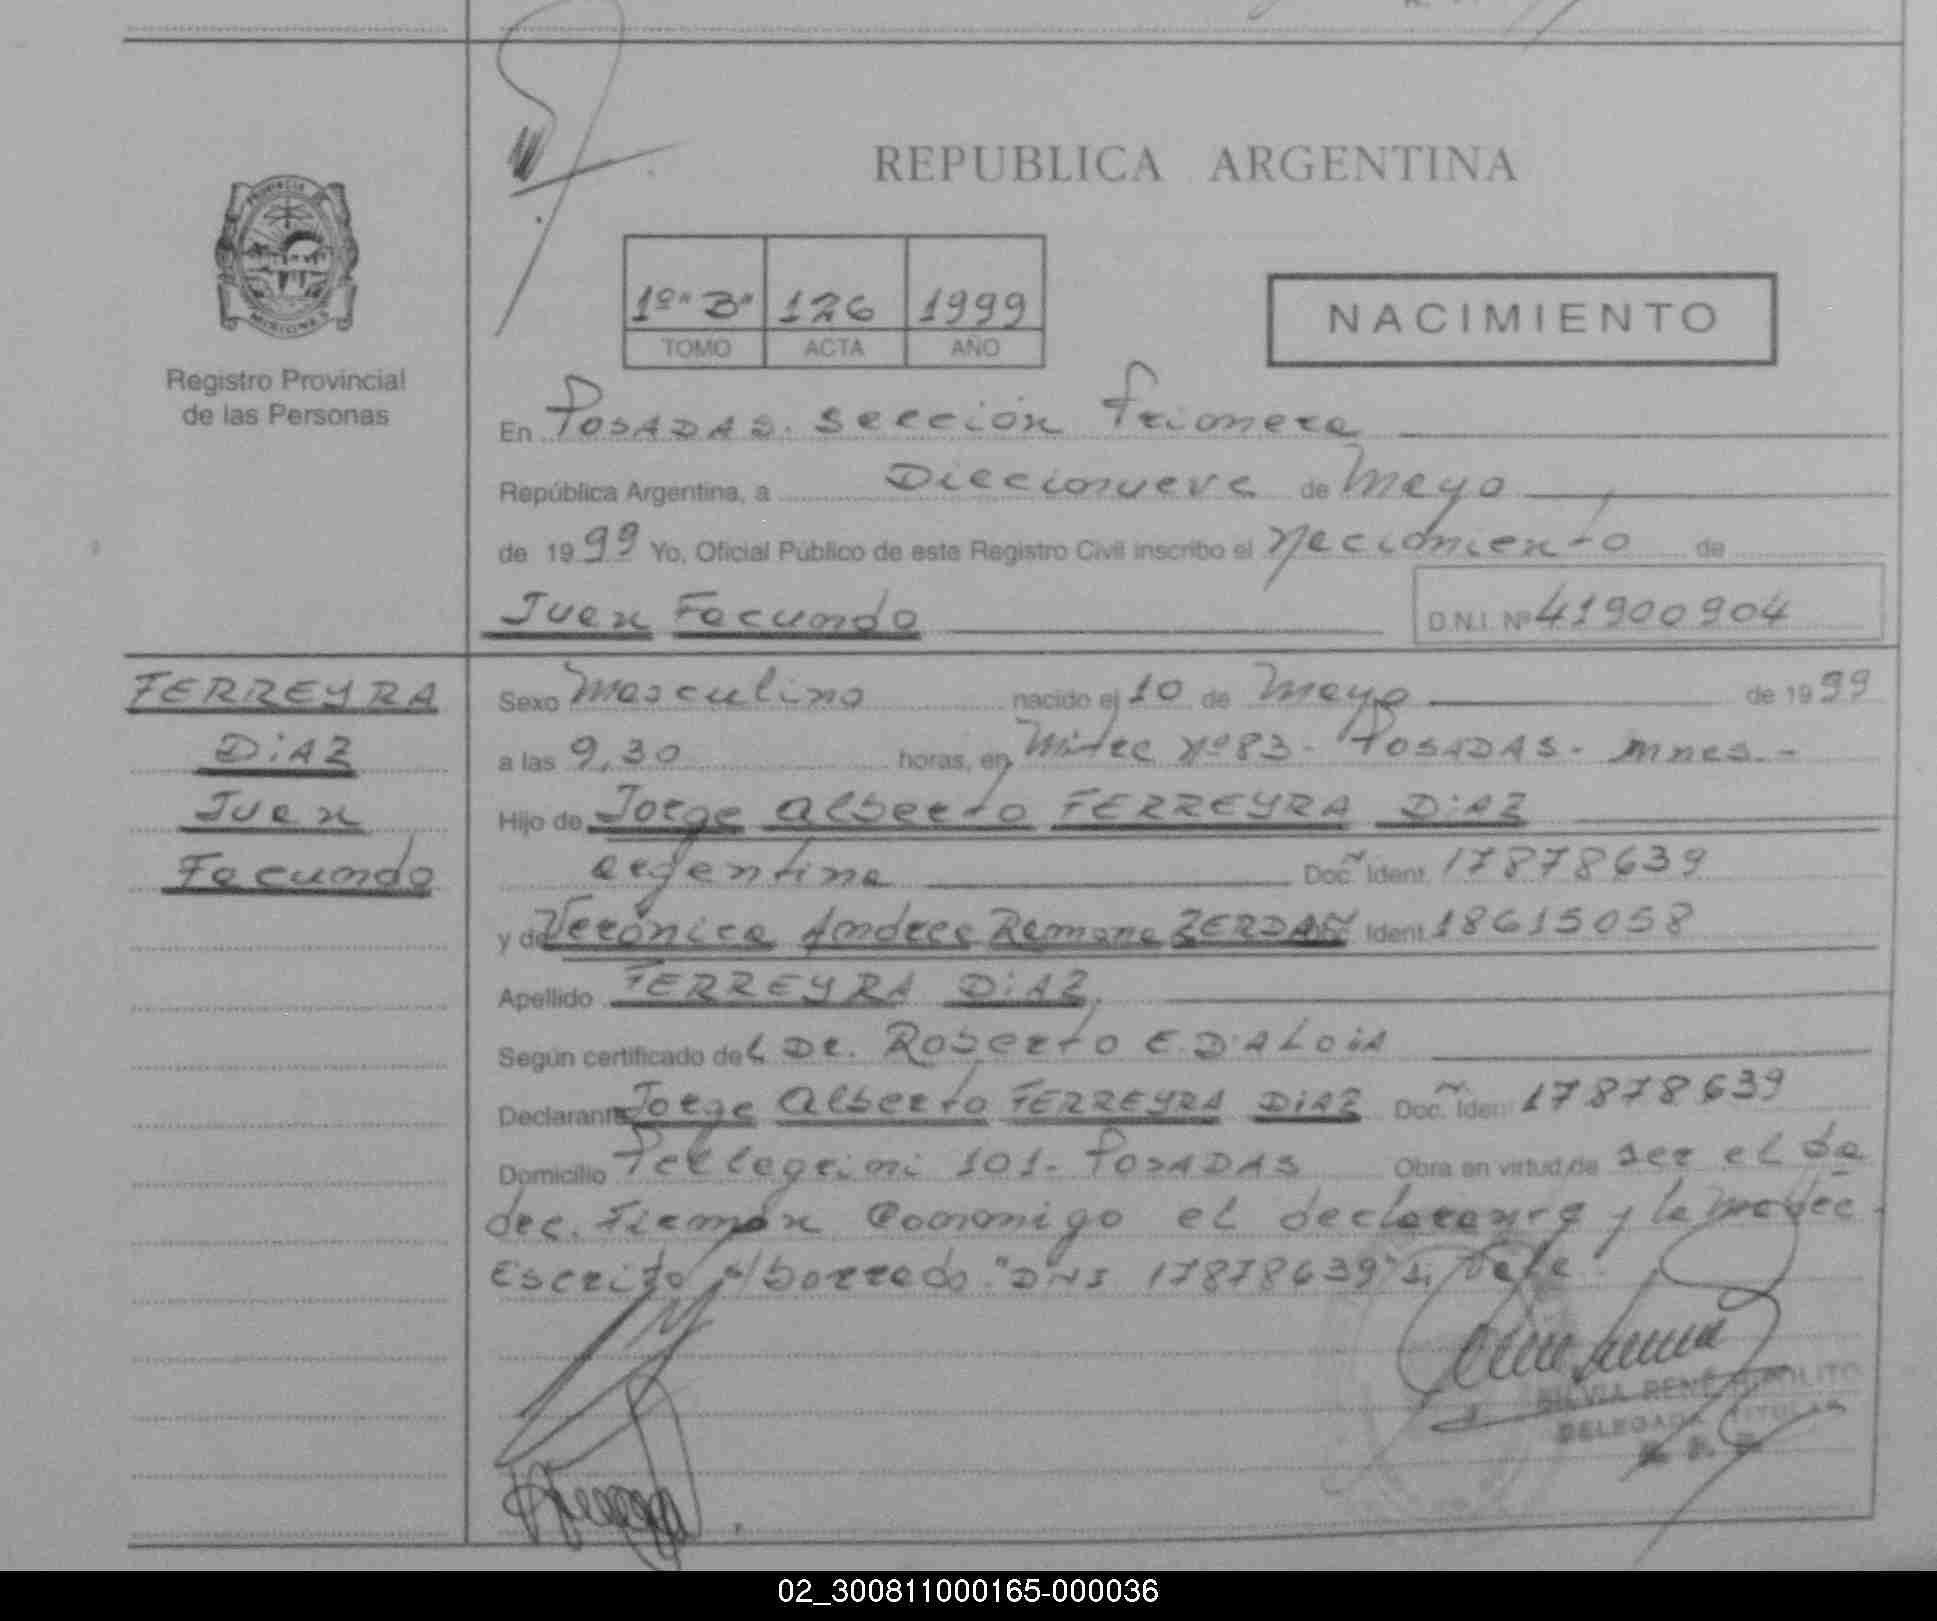 REPUBLICA ARGENTINA
1º "B" 126 1999
TOMO ACTA AÑO
NACIMIENTO
Registro Provincial
de las Personas
En POSADAS. Sección Primera
República Argentina, a Diecinueve de Mayo
de 1999 Yo, Oficial Público de este Registro Civil inscribo el Nacimiento de
Juan Facundo D.N.I. Nº 41900904
FERREYRA
DIAZ
Juan
Facundo
Sexo Masculino nacido el 10 de Mayo de 1999
a las 9,30 horas, en Mitre Nº 83 - POSADAS - Mnes. -
Hijo de Jorge Alberto FERREYRA DIAZ
argentina Doc. Ident. 17878639
y de Verónica Andrea Ramona ZERDAN Ident. 18615058
Apellido FERREYRA DIAZ
Según certificado del Dr. Roberto E. D'ALOIA
Declarante Jorge Alberto FERREYRA DIAZ Doc. Iden 17878639
Domicilio Pellegrini 101 - POSADAS Obra en virtud de ser el Pa
dre. Firman Conmigo el declarante y la Madre.
Escrito s/borrado "DNI 17878639" Vale.
SILVIA RENÉ HIPOLITO
DELEGADA TITULAR
02_300811000165-000036